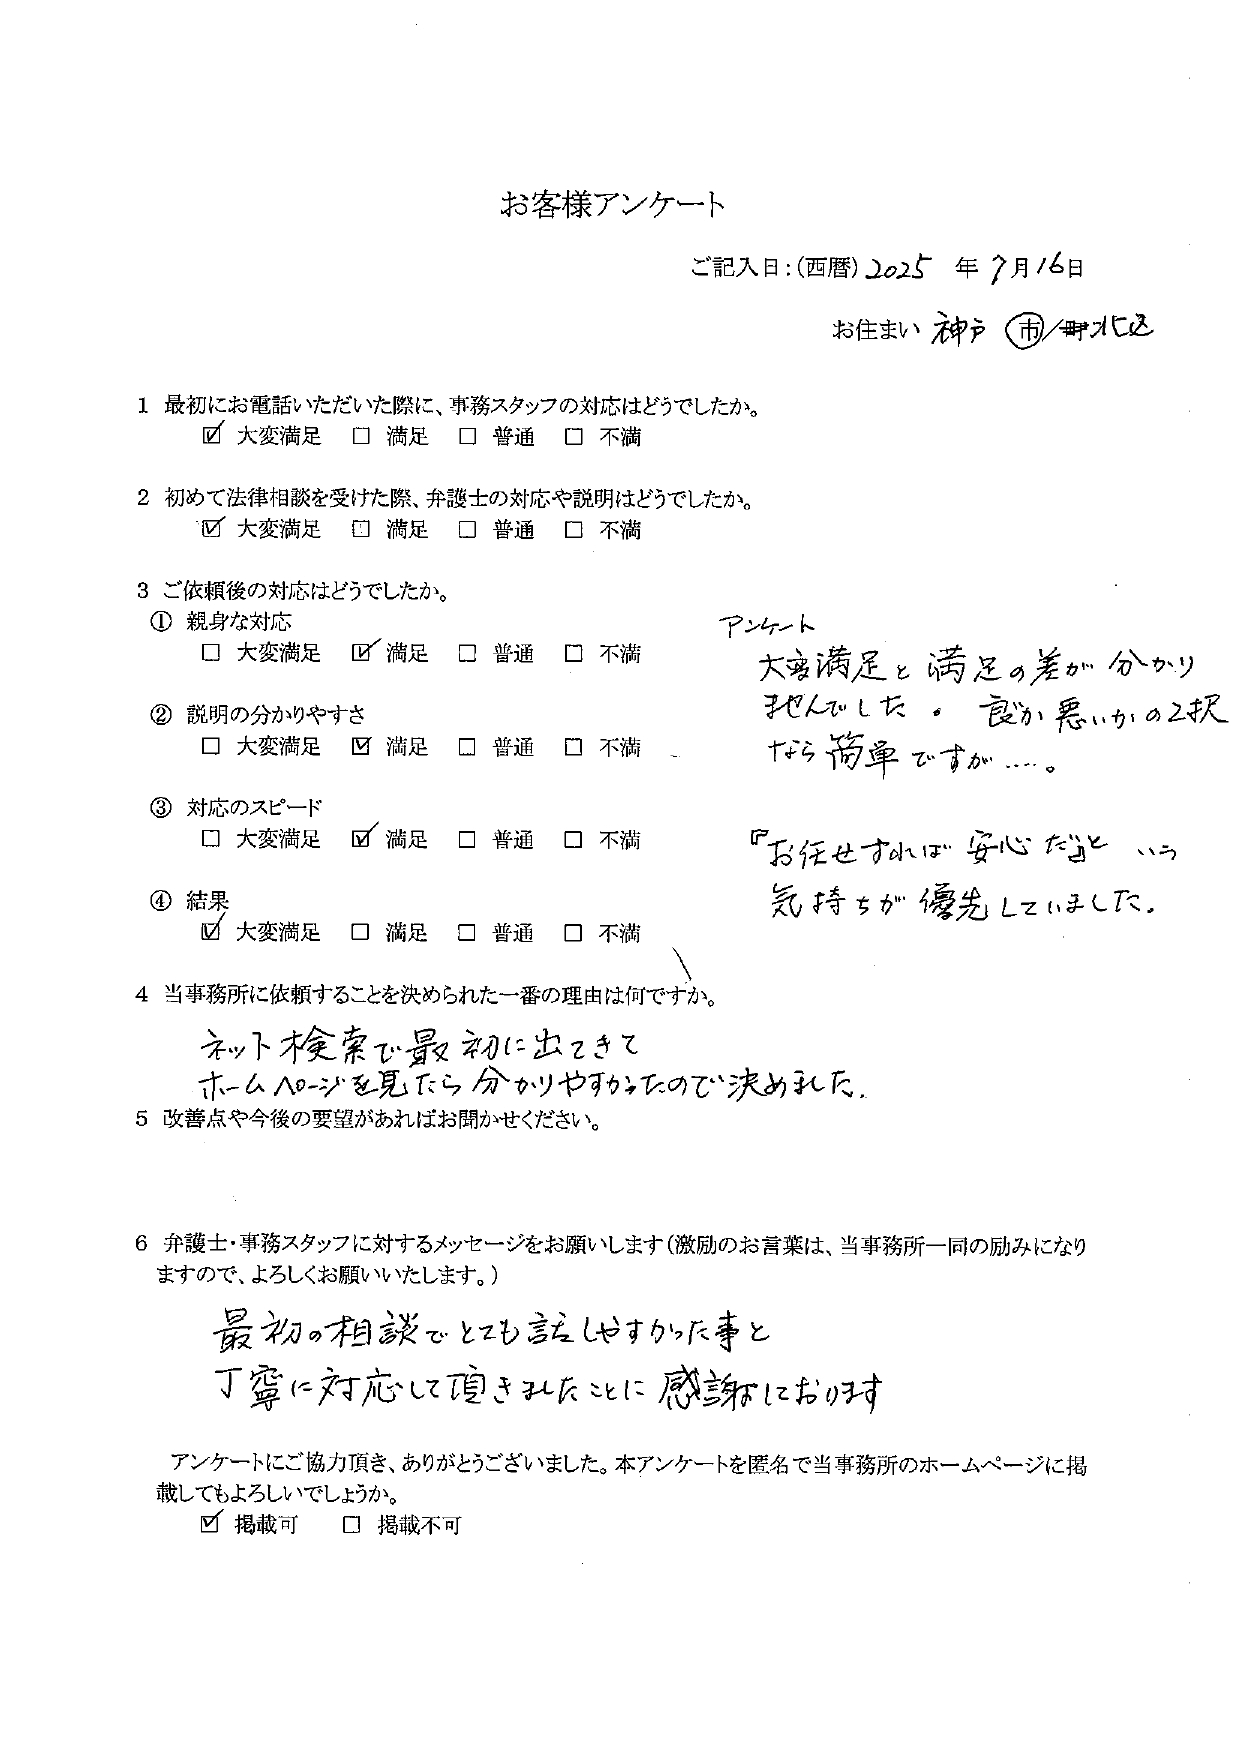 お客様アンケート
ご記入日：(西暦) 2025 年 7月16日
お住まい 神戸 市/町北区
1 最初にお電話いただいた際に、事務スタッフの対応はどうでしたか。
☑ 大変満足 □ 満足 □ 普通 □ 不満
2 初めて法律相談を受けた際、弁護士の対応や説明はどうでしたか。
☑ 大変満足 □ 満足 □ 普通 □ 不満
3 ご依頼後の対応はどうでしたか。
① 親身な対応
□ 大変満足 ☑ 満足 □ 普通 □ 不満
② 説明の分かりやすさ
□ 大変満足 ☑ 満足 □ 普通 □ 不満
③ 対応のスピード
□ 大変満足 ☑ 満足 □ 普通 □ 不満
④ 結果
☑ 大変満足 □ 満足 □ 普通 □ 不満
アンケート
大変満足と満足の差が分かり
ませんでした。良いか悪いかの2択
なら簡単ですが……。
『お任せすれば安心だ』という
気持ちが優先していました。
4 当事務所に依頼することを決められた一番の理由は何ですか。
ネット検索で最初に出てきて
ホームページを見たら分かりやすかったので決めました.
5 改善点や今後の要望があればお聞かせください。
6 弁護士・事務スタッフに対するメッセージをお願いします(激励のお言葉は、当事務所一同の励みになり
ますので、よろしくお願いいたします。)
最初の相談でとても話しやすかった事と
丁寧に対応して頂きましたことに感謝しております
アンケートにご協力頂き、ありがとうございました。本アンケートを匿名で当事務所のホームページに掲
載してもよろしいでしょうか。
☑ 掲載可 □ 掲載不可